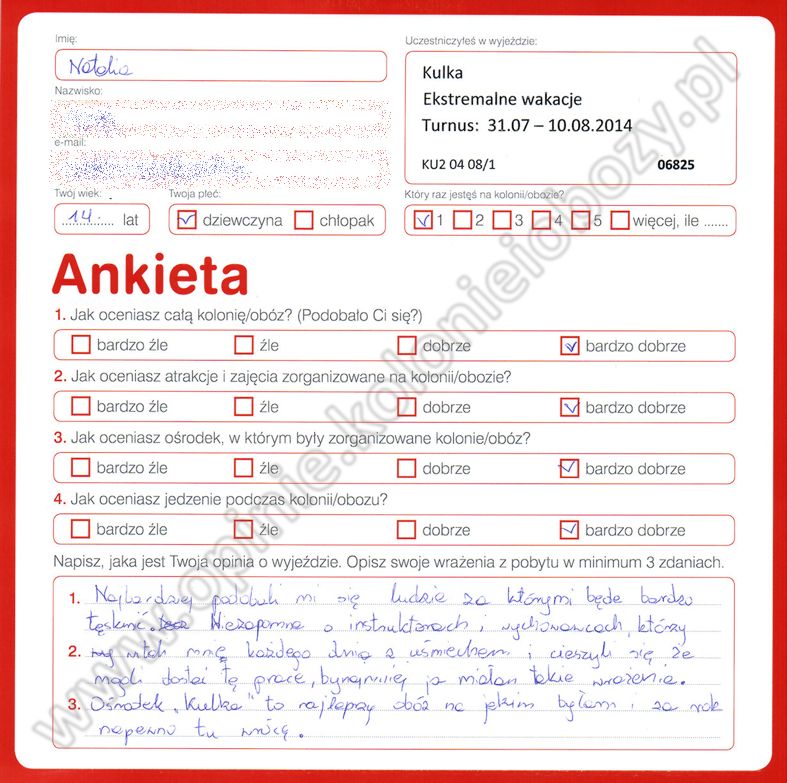 Imię:
Natalia
Uczestniczyłeś w wyjeździe:
Kulka
Ekstremalne wakacje
Turnus: 31.07 – 10.08.2014
KU2 04 08/1 06825
Nazwisko:
e-mail:
Twój wiek:
14 lat
Twoja płeć:
dziewczyna chłopak
Który raz jesteś na kolonii/obozie?
1 2 3 4 5 więcej, ile .......
Ankieta
1. Jak oceniasz całą kolonię/obóz? (Podobało Ci się?)
bardzo źle źle dobrze bardzo dobrze
2. Jak oceniasz atrakcje i zajęcia zorganizowane na kolonii/obozie?
bardzo źle źle dobrze bardzo dobrze
3. Jak oceniasz ośrodek, w którym były zorganizowane kolonie/obóz?
bardzo źle źle dobrze bardzo dobrze
4. Jak oceniasz jedzenie podczas kolonii/obozu?
bardzo źle źle dobrze bardzo dobrze
Napisz, jaka jest Twoja opinia o wyjeździe. Opisz swoje wrażenia z pobytu w minimum 3 zdaniach.
1. Najbardziej podobali mi się ludzie za którymi będe bardzo
tęsknić. Niezapomnę o instruktorach i wychowawcach, którzy
2. witali mnię każdego dnia z uśmiechem i cieszyli się że
mogli dostać tę prace, bynajmniej ja miałam takie wrażenie.
3. Ośrodek "Kulka" to najlepszy obóz na jakim byłam i za rok
napewno tu wrócę.
www.opinie.kolonieiobozy.pl